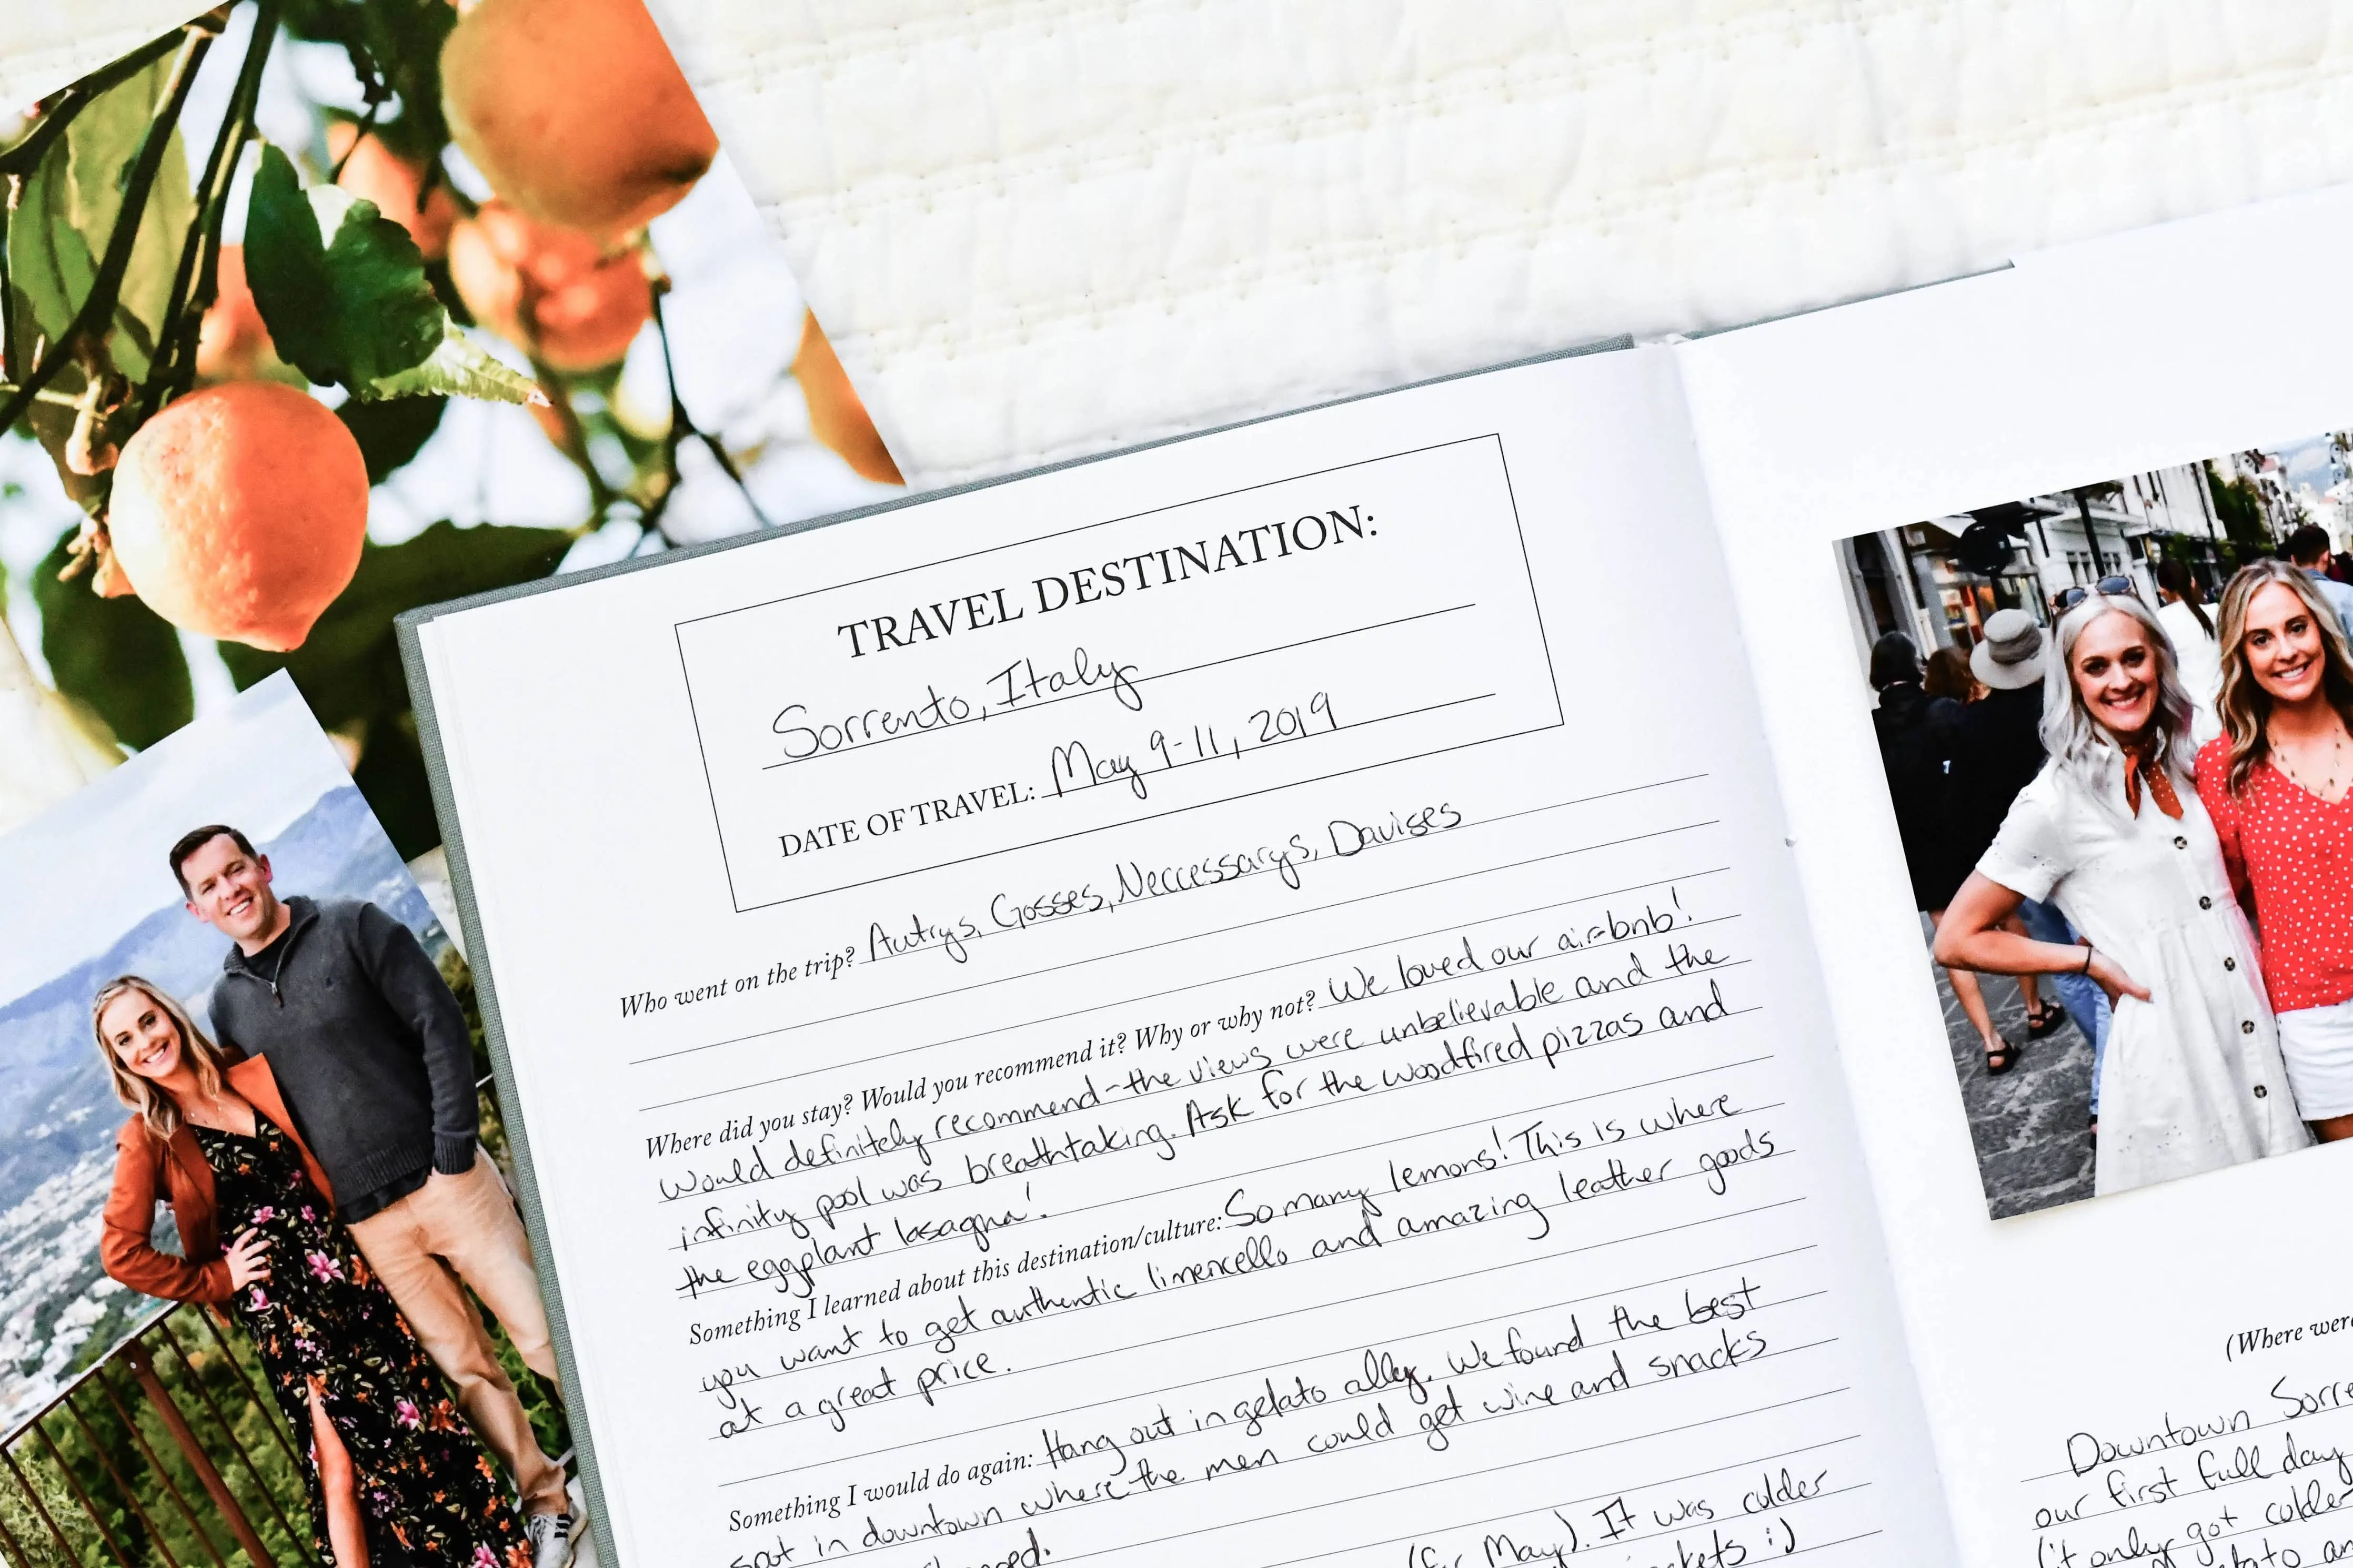 TRAVEL DESTINATION:
Sorrento, Italy
DATE OF TRAVEL: May 9-11, 2019
Who went on the trip? Autrys, Gosses, Neccessarys, Davises
Where did you stay? Would you recommend it? Why or why not? We loved our airbnb!
Would definitely recommend - the views were unbelievable and the
infinity pool was breathtaking. Ask for the woodfired pizzas and
the eggplant lasagna!
Something I learned about this destination/culture: So many lemons! This is where
you want to get authentic limencello and amazing leather goods
at a great price.
Something I would do again: Hang out in gelato alley. We found the best
spot in downtown where the men could get wine and snacks
(for May). It was colder
:)
(Where were
Downtown Sorre
our first full day
(it only got colder